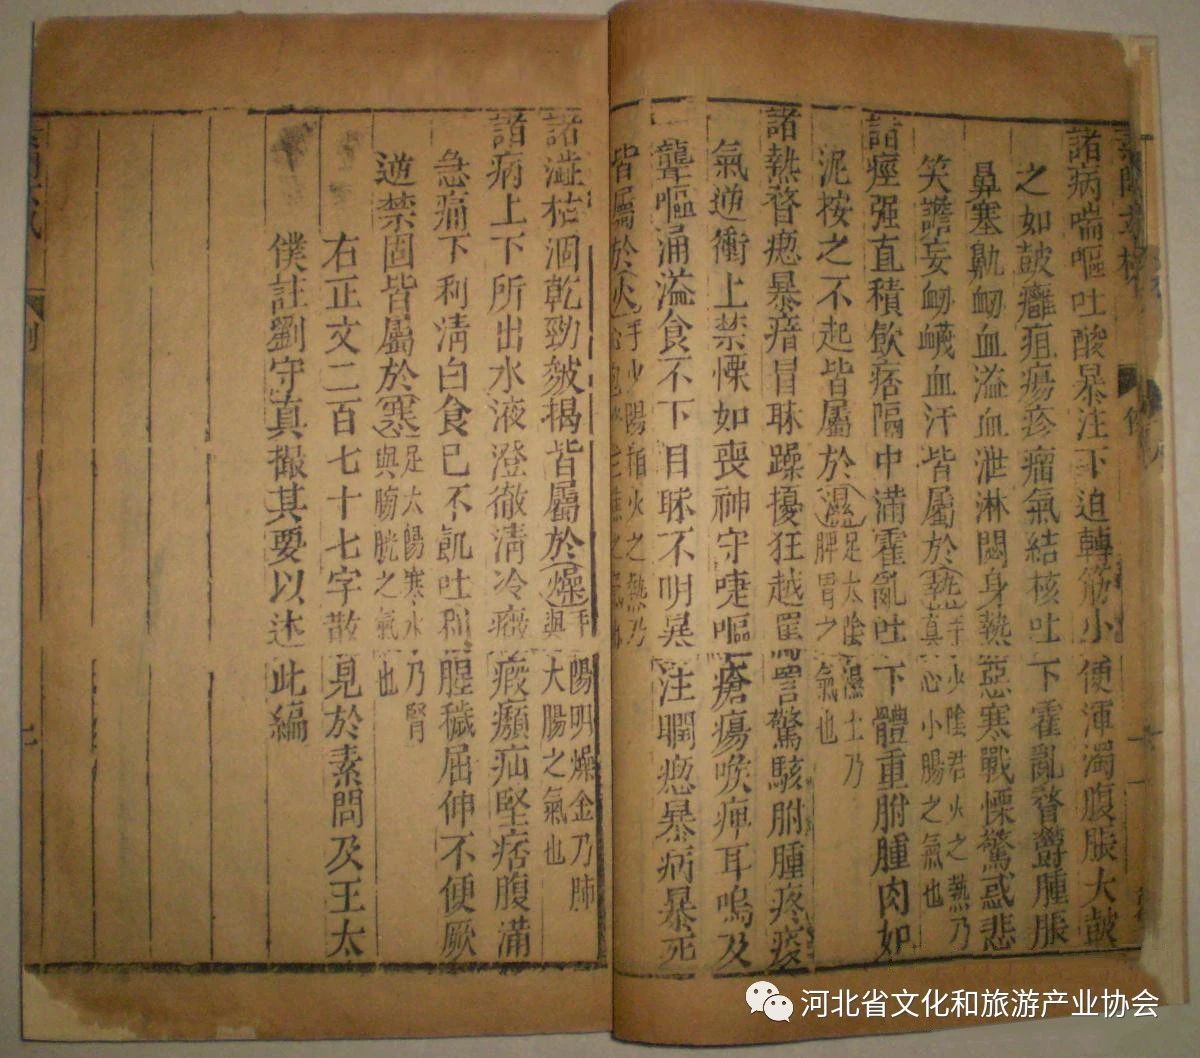 諸病喘嘔吐酸暴注下迫轉筋小便渾濁腹脹大鼓
之如鼓癰疽瘍疹瘤氣結核吐下霍亂瞀鬱腫脹
鼻塞鼽衂血溢血泄淋閟身熱惡寒戰慄驚惑悲
笑譫妄衂衊血汗皆屬於熱手少陰君火之熱乃真心小腸之氣也
諸痙强直積飲痞隔中滿霍亂吐下體重胕腫肉如
泥按之不起皆屬於濕足太陰濕土乃脾胃之氣也
諸熱瞀瘛暴瘖冒昧躁擾狂越罵詈驚駭胕腫疼痠
氣逆衝上禁慄如喪神守嚏嘔瘡瘍喉痺耳鳴及
聾嘔涌溢食不下目昧不明暴注瞤瘛暴病暴死
皆屬於火手少陽相火之熱乃心包絡三焦之氣
諸澁枯涸乾勁皴揭皆屬於燥手陽明燥金乃肺與大腸之氣也
諸病上下所出水液澄徹清冷癥瘕癩疝堅痞腹滿
急痛下利清白食已不飢吐利腥穢屈伸不便厥
逆禁固皆屬於寒足太陽寒水乃腎與膀胱之氣也
右正文二百七十七字散見於素問及王太
僕註劉守真撮其要以述此編
河北省文化和旅游产业协会